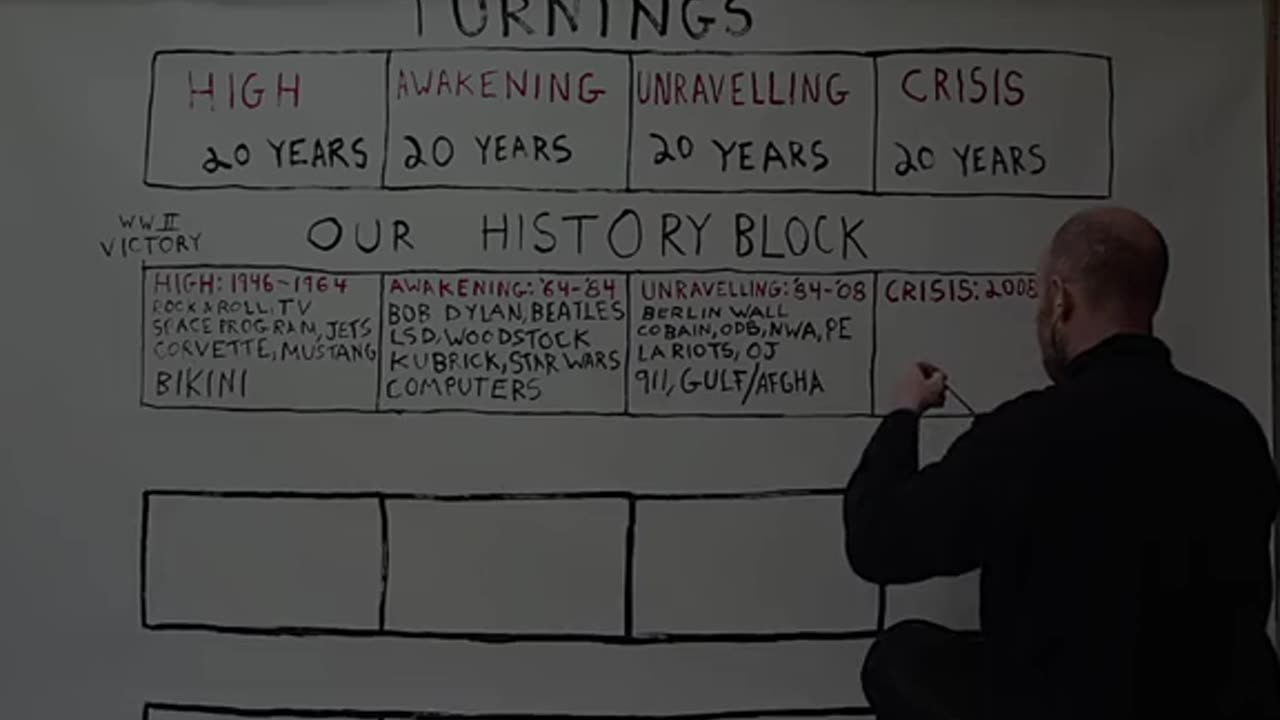 TURNINGS
HIGH
20 YEARS
AWAKENING
20 YEARS
UNRAVELLING
20 YEARS
CRISIS
20 YEARS
WWII
VICTORY
OUR HISTORY BLOCK
HIGH: 1946-1964
ROCK & ROLL, TV
SPACE PROGRAM, JETS
CORVETTE, MUSTANG
BIKINI
AWAKENING: '64-'84
BOB DYLAN, BEATLES
LSD, WOODSTOCK
KUBRICK, STAR WARS
COMPUTERS
UNRAVELLING: '84-'08
BERLIN WALL
COBAIN, ODB, NWA, PE
LA RIOTS, OJ
911, GULF/AFGHA
CRISIS: 2008